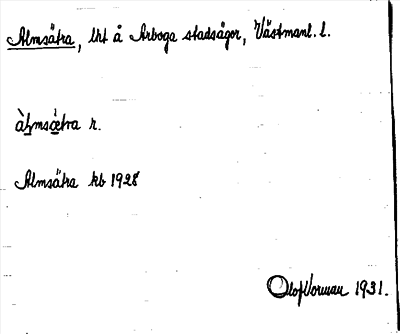 Almsätra, lht å Arboga stadsägor, Västmanl. l.
àl̥msæ̀tra r.
Almsätra kb 1928
Olof Vorman 1931.